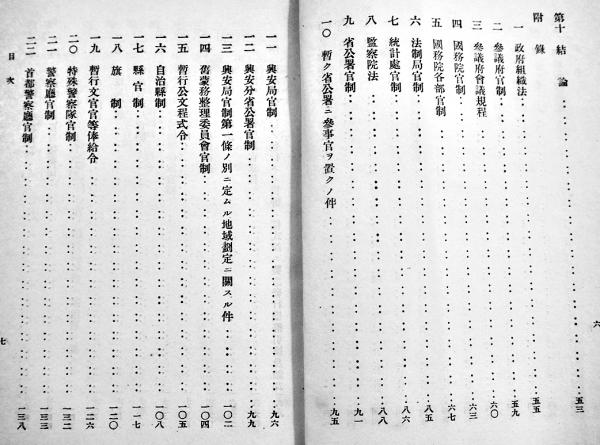 第十 結論……五三
附錄
一 政府組織法……五五
二 參議府官制……五九
三 參議府會議規程……六〇
四 國務院官制……六三
五 國務院各部官制……六七
六 法制局官制……八五
七 統計處官制……八六
八 監察院法……八八
九 省公署官制……九一
一〇 暫ク省公署ニ參事官ヲ置クノ件……九五
六
一一 興安局官制……九六
一二 興安分省公署官制……九九
一三 興安局官制第一條ノ別ニ定ムル地域劃定ニ關スル件……一〇二
一四 舊蒙務整理委員會官制……一〇四
一五 暫行公文程式令……一〇五
一六 自治縣制……一〇八
一七 縣官制……一一七
一八 旗制……一二〇
一九 暫行文官官等俸給令……一二六
二〇 特殊警察隊官制……一三二
二一 警察廳官制……一三三
二二 首都警察廳官制……一三八
目次
七